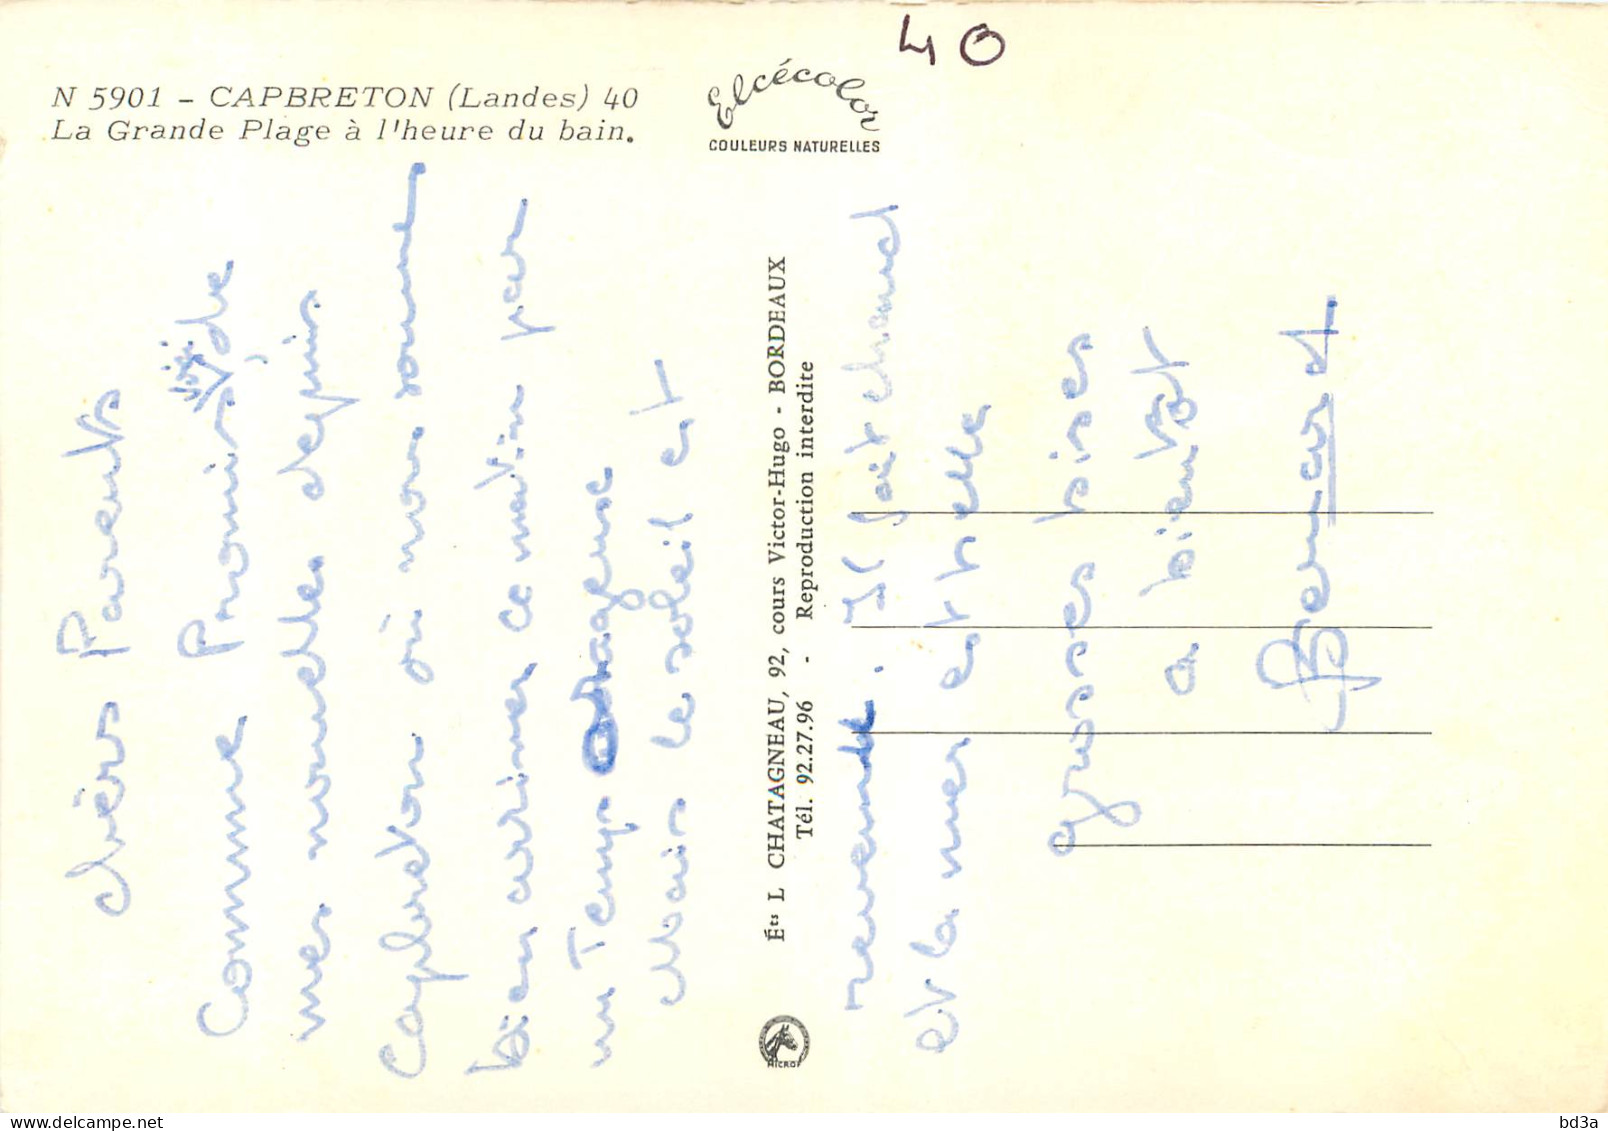 40
N 5901 - CAPBRETON (Landes) 40
La Grande Plage à l'heure du bain.
Elcécolor
COULEURS NATURELLES
chèrs Parents
Comme Promis, voiçi de
mes nouvelles depuis
Capbreton où nous somme
bien arrimer ce matin par
un Temps orageuse
Mais le soleil est
Éts L CHATAGNEAU, 92, cours Victor-Hugo - BORDEAUX
Tél. 92.27.96 - Reproduction interdite
MICROF
revenue. Il fait chaud
et la mer est belle
grosses bises
a bientot
Bernard
delcampe.net
bd3a